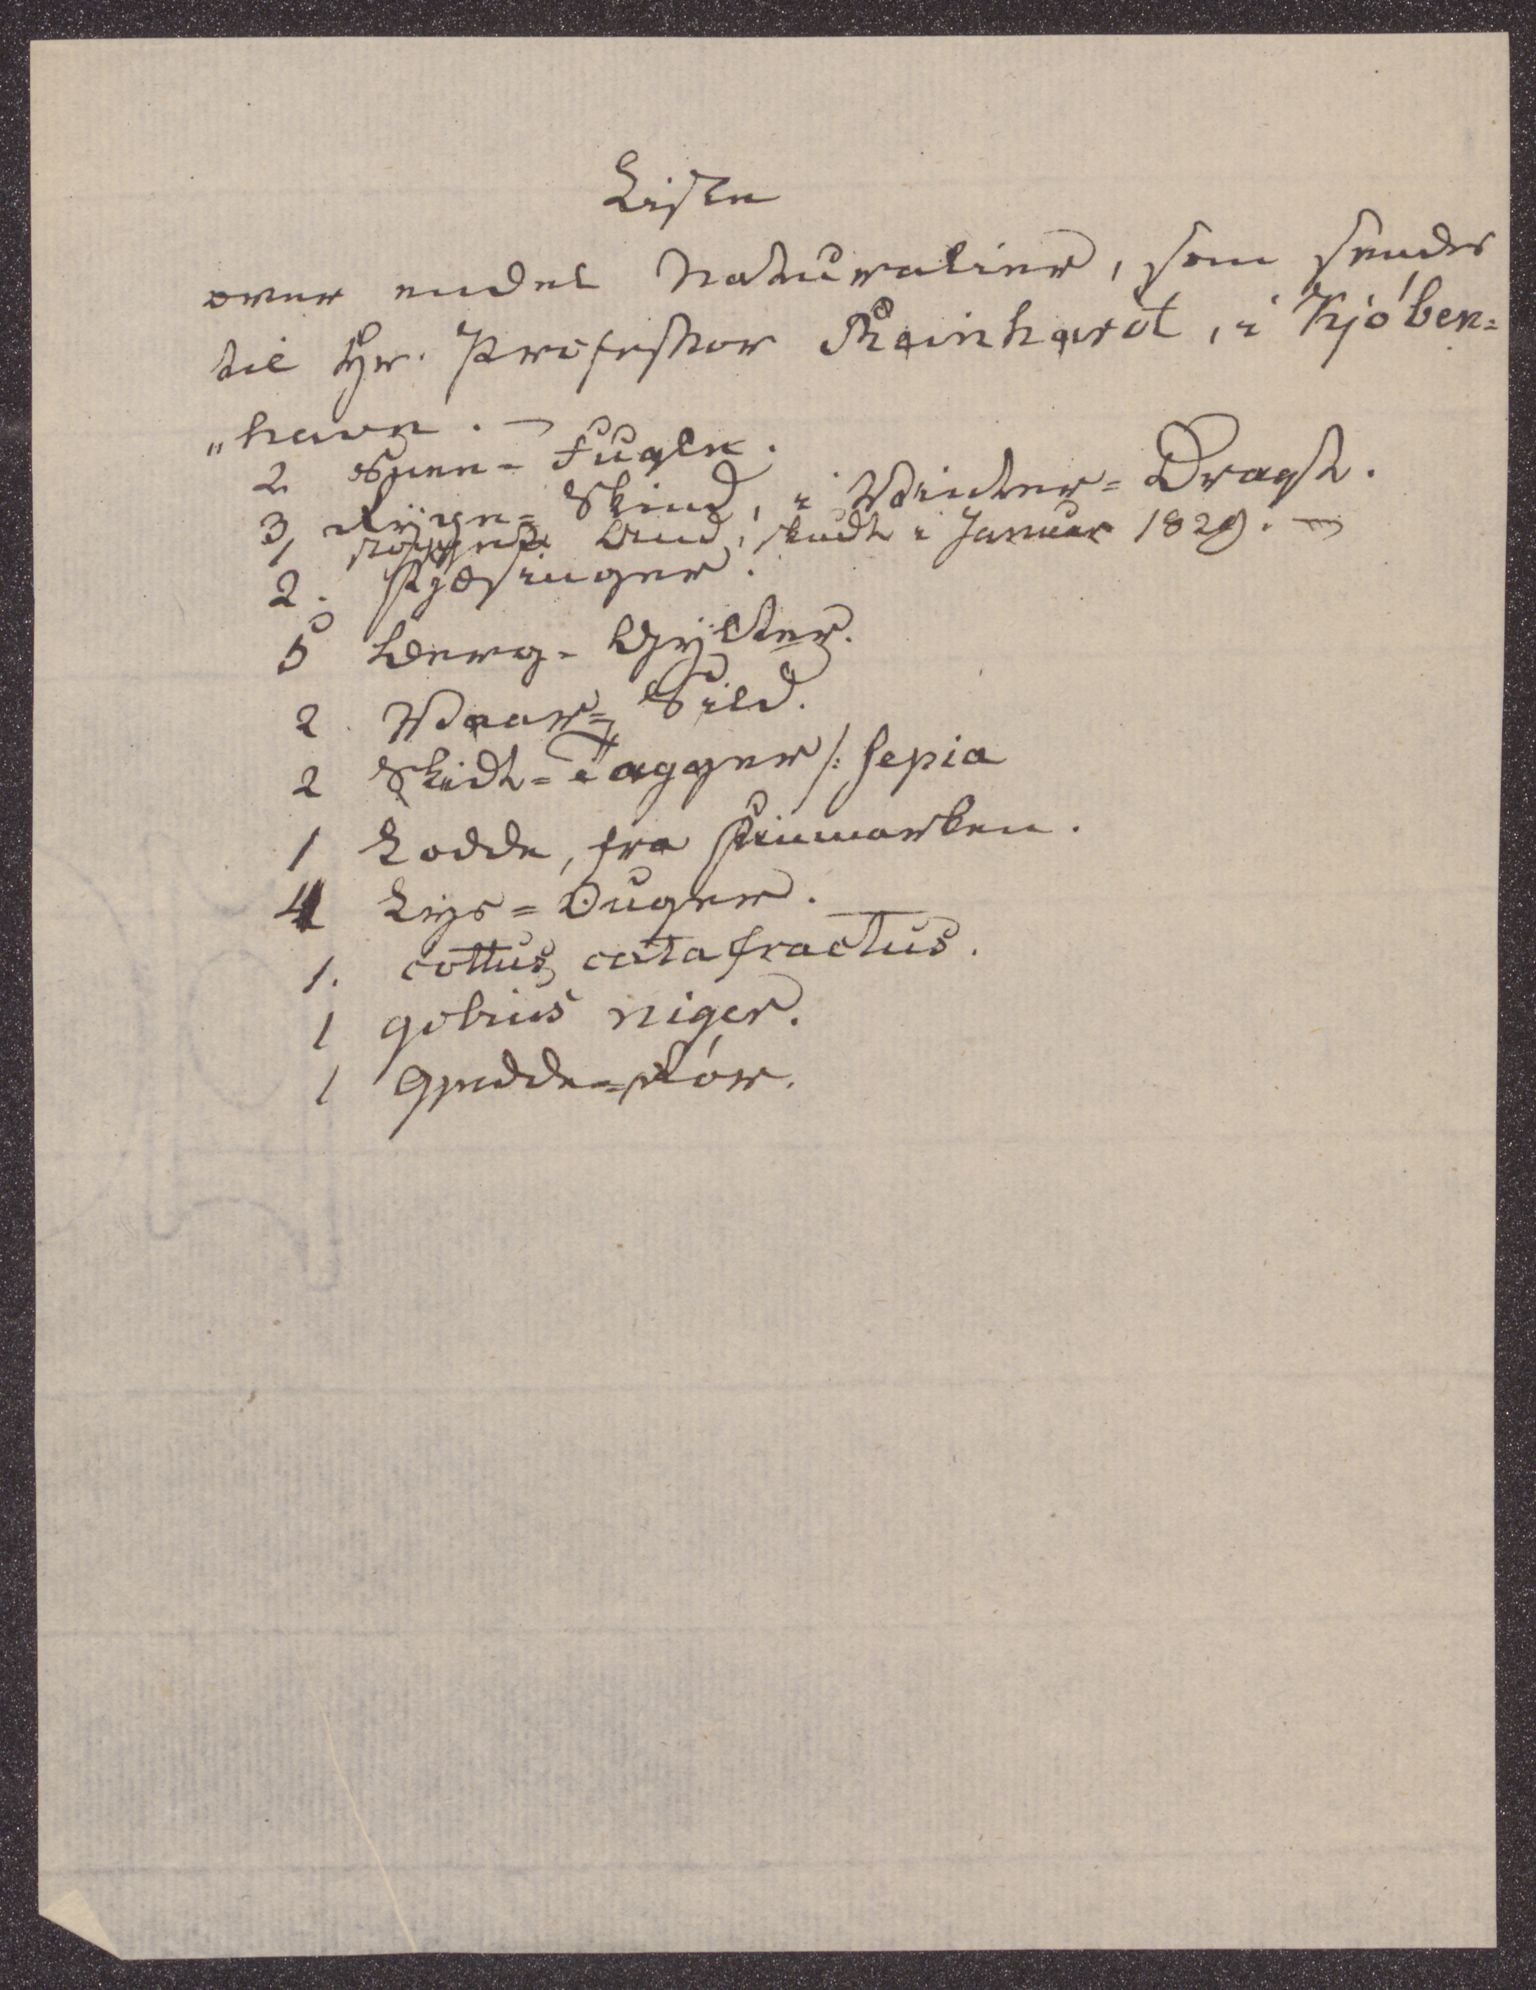 Liste
over endel Naturalier, som sendes
til Hr. Professor Reinhardt, i Kjóben=
„havn. —
2 Snee-Fugle.
3, Rype-Skind, i Vinter=Dragt.
And, skudt i Januar 1829. —
2. Fjæsinger.
5 Berg-Gylter.
2. Vaar=Sild.
2 Skidt=Tagger /: sepia
1 Lodde, fra Finmarken.
4 Lys=Ouger.
1. cottus catafractus.
1 gobius niger.
1 Gjedde=Rór.